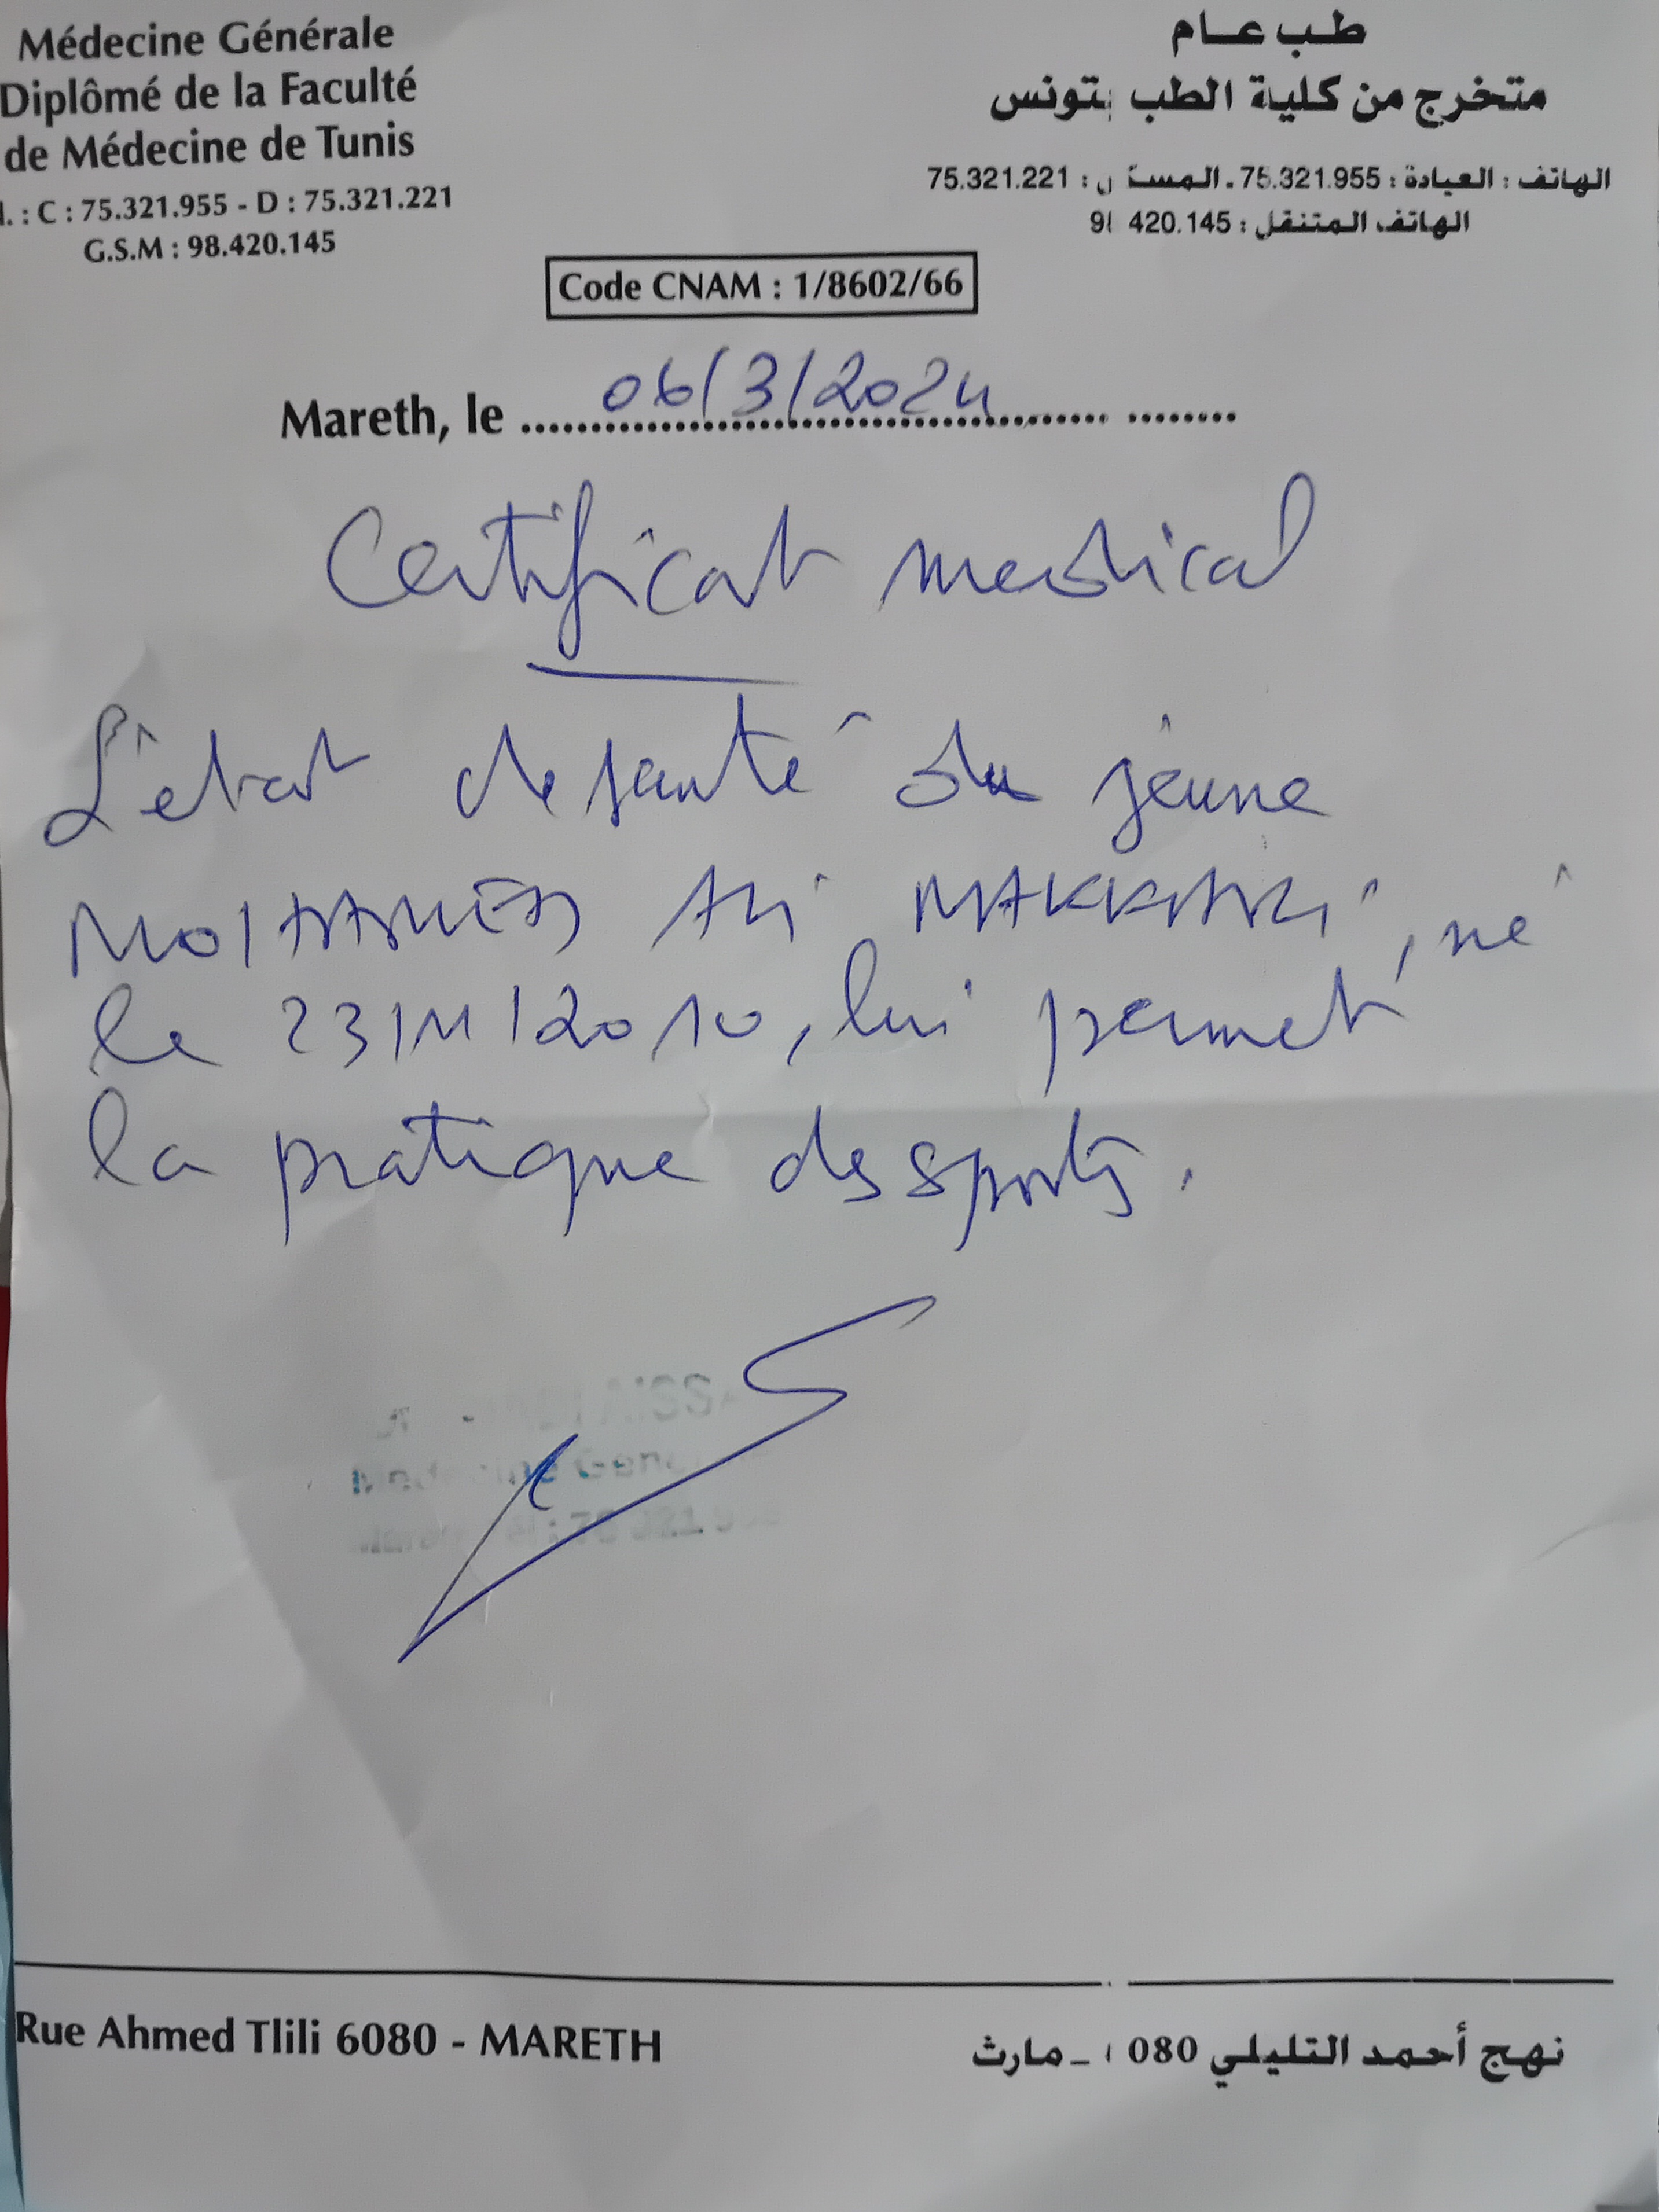 Médecine Générale
Diplômé de la Faculté
de Médecine de Tunis
l. : C : 75.321.955 - D : 75.321.221
G.S.M : 98.420.145
طب عام
متخرج من كلية الطب بتونس
الهاتف : العيادة : 75.321.955 ـ المسـ ن : 75.321.221
الهاتف المتنقل : 9 420.145
Code CNAM : 1/8602/66
Mareth, le 06/3/2024
Certificat medical
L'état de santé du jeune
MOHAMED Ali, né
le 23/11/2010, lui permet
la pratique des sports.
AISSA
Medecine Gene
: 75 321 9
Rue Ahmed Tlili 6080 - MARETH
نهج أحمد التليلي 080 ـ مارث